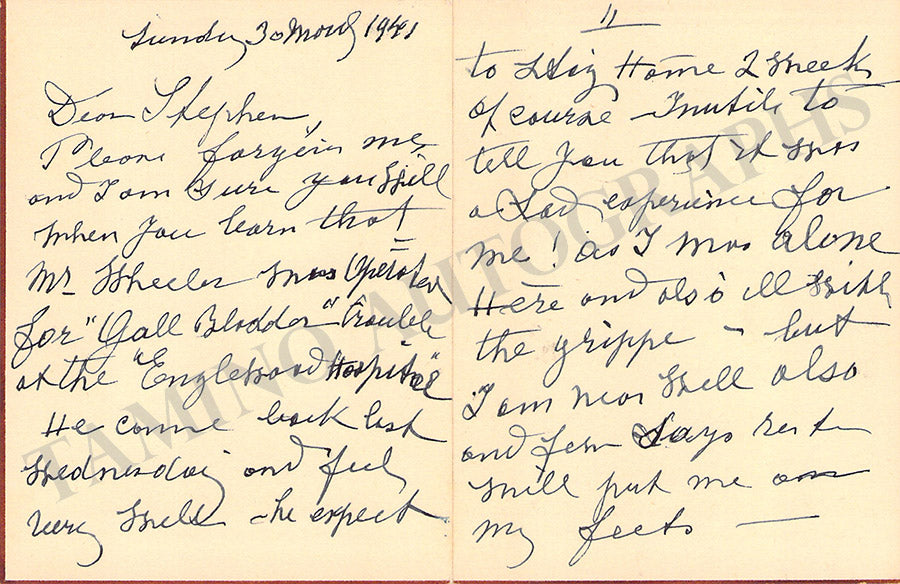 Sunday 30 March 1941
Dear Stephen,
Please forgive me,
and I am sure you Will
When you learn that
Mr Wheeler Was Operated
for "Gall Bladder" Trouble
at the "Englewood Hospital"
He came back last
Wednesday and feel
very Well - he expect
11
to stay Home 2 Weeks
of course - Inutile to
tell you that it Was
a sad experience for
me! as I Was alone
Here and also ill With
the grippe - but
I am now Well also
and few days rest
Will put me on
my feets -
TAMINO AUTOGRAPHS